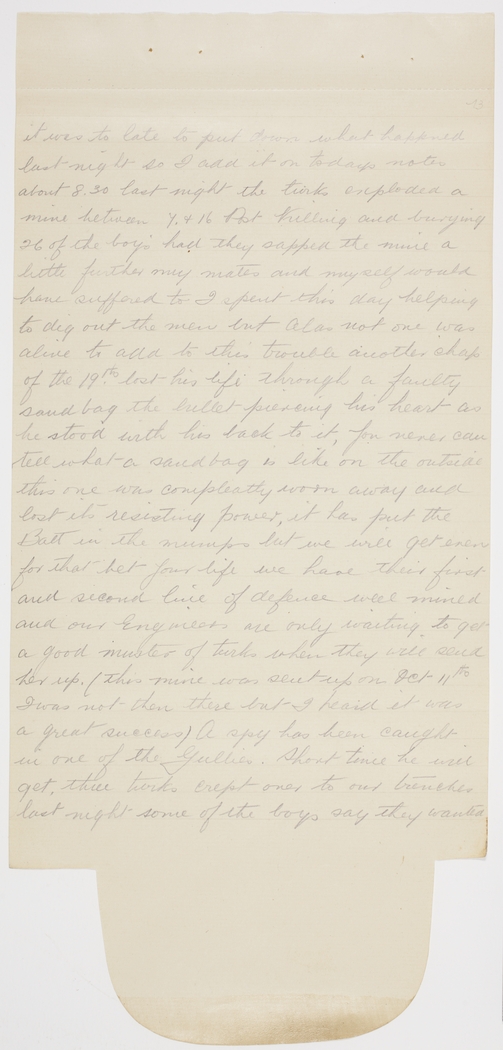 it was to late to put down what happened
last night so I add it on todays notes
about 8.30 last night the turks exploded a
mine between & 16 Post Killing and burying
26 of the boys had they sapped the mine a
little further my mates and myself would
have suffered to I spent this day helping
to dig out the men but alas not one was
alive to add to this trouble another chap
of the 19th lost his life through a faulty
sandbag the bullet piercing his heart as
he stood with his back to it, you never can
tell what a sandbag is like on the outside
this one was compleatly worn away and
lost its resisting power, it has put the
Batt in the mumps but we will get even
for that bet your life we have their first
and second line of defence well mined
and our Engineers are only waiting to get
a good muster of turks when they will send
her up. (this mine was sent up on Oct 11th
I was not then there but I heard it was
a great success) A spy has been caught
in one of the Gullies. Short time he will
get, three turks crept over to our trenches
last night some of the boys say they wanted